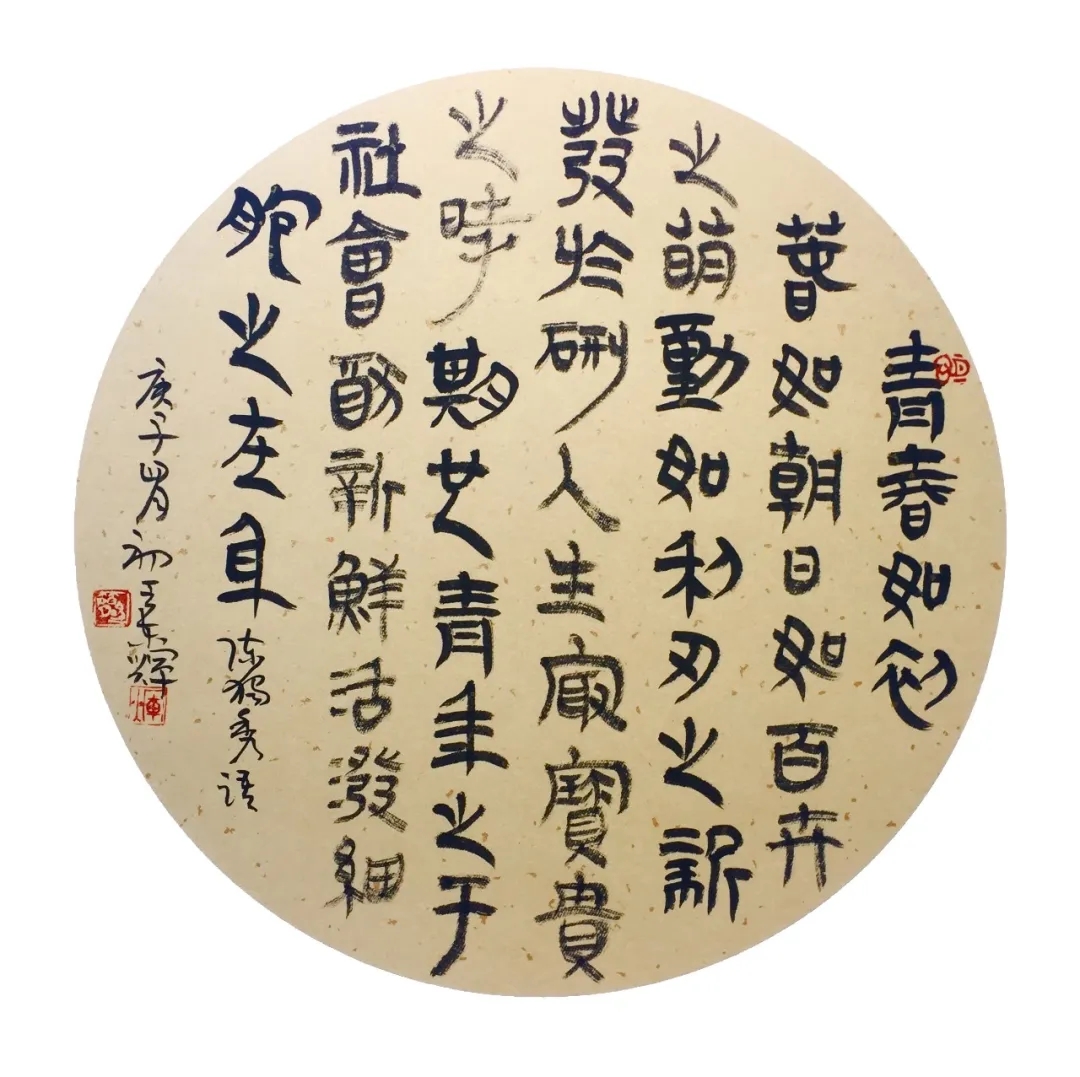 青春如初
萅如朝日如百卉
之萌動如利刃之新
發於硎人生冣寶貴
之時期也青年之于
社會猶新鮮活潑細
胞之在身
陈獨秀语
庚子岁初王